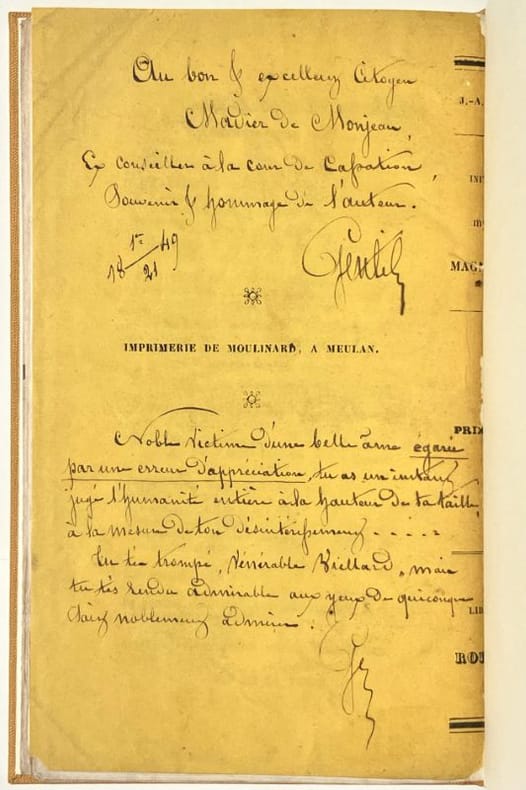 Au bon & excellent Citoyen
Madier de Monjeau,
Ex conseiller à la cour de Cassation,
Souvenir & hommage de l'auteur.
18 1er/21 49
Gentil
IMPRIMERIE DE MOULINARD, A MEULAN.
Noble victime d'une belle âme égarée
par une erreur d'appréciation, tu as un instant
jugé l'humanité entière à la hauteur de ta taille,
à la mesure de ton désintéressement . . . . .
Tu t'es trompé, Vénérable Vieillard, mais
tu t'es rendu admirable aux yeux de quiconque
sait noblement admirer.
Ge
J.-A.
INI
MAG
PRIX
LIB
ROU